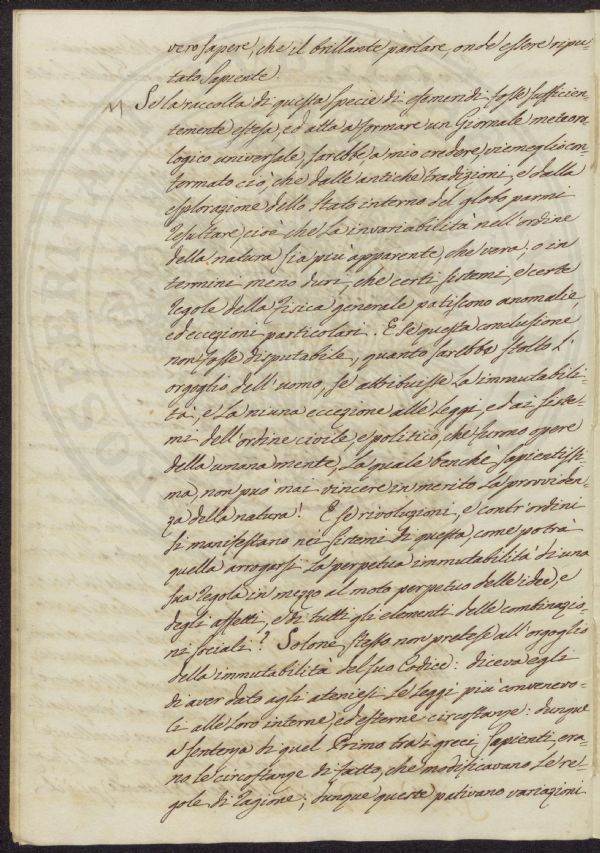 vero sapere, che il brillante parlare, ond'essere ripu-
tato sapiente.
Se la raccolta di questa specie di efemeridi fosse sufficien-
temente estesa, ed atta a formare un Giornale meteoro-
logico universale, sarebbe, a mio credere, viemeglio con-
fermato ciò, che dalle antiche tradizioni, e dalla
esplorazione dello stato interno del globo parmi
resultare, cioè che la invariabilità nell'ordine
della natura sia più apparente, che vera: o in
termini meno duri, che certi sistemi, e certe
regole della Fisica generale patiscono anomalie,
ed eccezioni particolari. E se questa conclusione
non fosse disputabile, quanto sarebbe stolto l'
orgoglio dell'uomo, se attribuisse la immutabili-
tà, e la niuna eccezione alle leggi, ed ai siste-
mi dell'ordine civile, e politico, che furono opere
della umana mente, la quale benchè sapientissi-
ma, non può mai vincere in merito la provviden-
za della natura! E se rivoluzioni, e contr'ordini
si manifestano nei sistemi di questa, come potrà
quella arrogarsi la perpetua immutabilità di una
sua regola in mezzo al moto perpetuo delle idee, e
degli affetti, e di tutti gli elementi delle combinazio-
ni sociali? Solone stesso non pretese all'orgoglio
della immutabilità del suo Codice: diceva egli
di aver dato agli ateniesi le leggi più convenevo-
li alle loro interne, ed esterne circostanze: dunque
a sentenza di quel Primo tra i greci sapienti, era-
no le circostanze di fatto, che modificavano le re-
gole di ragione; dunque queste pativano variazioni